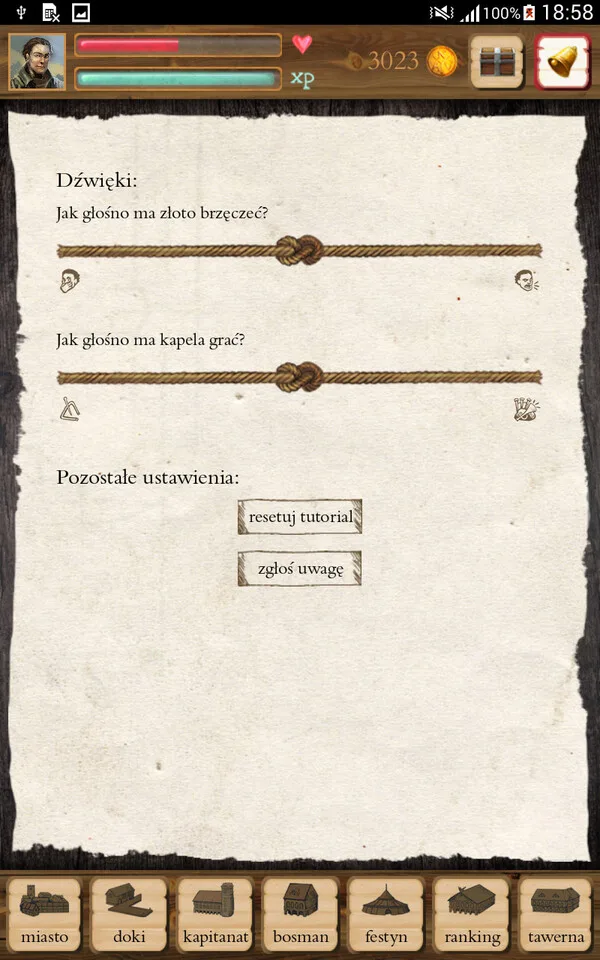 100% 18:58
3023
xp
Dźwięki:
Jak głośno ma złoto brzęczeć?
Jak głośno ma kapela grać?
Pozostałe ustawienia:
resetuj tutorial
zgłoś uwagę
miasto doki kapitanat bosman festyn ranking tawerna